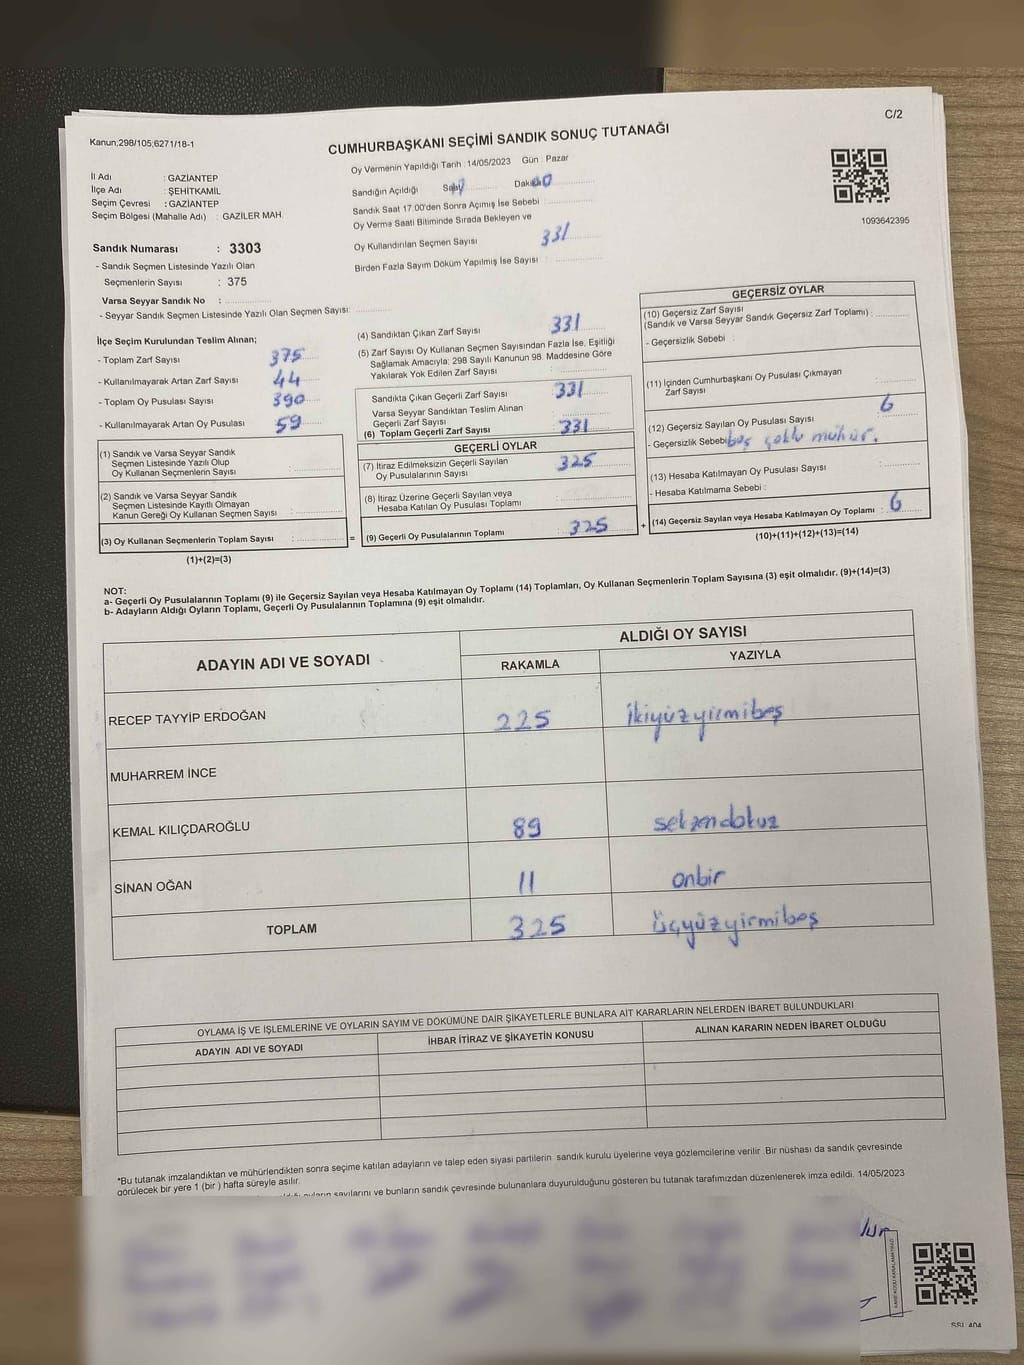 C/2
Kanun;298/105;6271/18-1
CUMHURBAŞKANI SEÇİMİ SANDIK SONUÇ TUTANAĞI
Oy Vermenin Yapıldığı Tarih : 14/05/2023 Gün : Pazar
İl Adı : GAZİANTEP
İlçe Adı : ŞEHİTKAMİL
Seçim Çevresi : GAZİANTEP
Seçim Bölgesi (Mahalle Adı) : GAZİLER MAH.
Sandığın Açıldığı
Sandık Saat 17.00'den Sonra Açımış İse Sebebi :
Oy Verme Saati Bitiminde Sırada Bekleyen ve
Oy Kullandırılan Seçmen Sayısı 331
Birden Fazla Sayım Döküm Yapılmış İse Sayısı :
1093642395
Sandık Numarası : 3303
- Sandık Seçmen Listesinde Yazılı Olan
Seçmenlerin Sayısı : 375
Varsa Seyyar Sandık No :
- Seyyar Sandık Seçmen Listesinde Yazılı Olan Seçmen Sayısı:
İlçe Seçim Kurulundan Teslim Alınan;
- Toplam Zarf Sayısı 375
- Kullanılmayarak Artan Zarf Sayısı 44
- Toplam Oy Pusulası Sayısı 390
- Kullanılmayarak Artan Oy Pusulası 59
(1) Sandık ve Varsa Seyyar Sandık
Seçmen Listesinde Yazılı Olup
Oy Kullanan Seçmenlerin Sayısı :
(2) Sandık ve Varsa Seyyar Sandık
Seçmen Listesinde Kayıtlı Olmayan
Kanun Gereği Oy Kullanan Seçmen Sayısı :
(3) Oy Kullanan Seçmenlerin Toplam Sayısı :
(1)+(2)=(3)
=
(4) Sandıktan Çıkan Zarf Sayısı 331
(5) Zarf Sayısı Oy Kullanan Seçmen Sayısından Fazla İse, Eşitliği
Sağlamak Amacıyla; 298 Sayılı Kanunun 98. Maddesine Göre
Yakılarak Yok Edilen Zarf Sayısı :
Sandıkta Çıkan Geçerli Zarf Sayısı 331
Varsa Seyyar Sandıktan Teslim Alınan
Geçerli Zarf Sayısı :
(6) Toplam Geçerli Zarf Sayısı 331
GEÇERLİ OYLAR
(7) İtiraz Edilmeksizin Geçerli Sayılan
Oy Pusulalarının Sayısı 325
(8) İtiraz Üzerine Geçerli Sayılan veya
Hesaba Katılan Oy Pusulası Toplamı :
(9) Geçerli Oy Pusulalarının Toplamı 325
+
GEÇERSİZ OYLAR
(10) Geçersiz Zarf Sayısı
(Sandık ve Varsa Seyyar Sandık Geçersiz Zarf Toplamı) :
- Geçersizlik Sebebi :
(11) İçinden Cumhurbaşkanı Oy Pusulası Çıkmayan
Zarf Sayısı :
(12) Geçersiz Sayılan Oy Pusulası Sayısı : 6
- Geçersizlik Sebebi boş çoklu mühür.
(13) Hesaba Katılmayan Oy Pusulası Sayısı :
- Hesaba Katılmama Sebebi :
(14) Geçersiz Sayılan veya Hesaba Katılmayan Oy Toplamı : 6
(10)+(11)+(12)+(13)=(14)
NOT:
a- Geçerli Oy Pusulalarının Toplamı (9) ile Geçersiz Sayılan veya Hesaba Katılmayan Oy Toplamı (14) Toplamları, Oy Kullanan Seçmenlerin Toplam Sayısına (3) eşit olmalıdır. (9)+(14)=(3)
b- Adayların Aldığı Oyların Toplamı, Geçerli Oy Pusulalarının Toplamına (9) eşit olmalıdır.
ADAYIN ADI VE SOYADI ALDIĞI OY SAYISI
RAKAMLA YAZIYLA
RECEP TAYYİP ERDOĞAN 225 ikiyüzyirmibeş
MUHARREM İNCE
KEMAL KILIÇDAROĞLU 89 seksendokuz
SİNAN OĞAN 11 onbir
TOPLAM 325 üçyüzyirmibeş
OYLAMA İŞ VE İŞLEMLERİNE VE OYLARIN SAYIM VE DÖKÜMÜNE DAİR ŞİKAYETLERLE BUNLARA AİT KARARLARIN NELERDEN İBARET BULUNDUKLARI
ADAYIN ADI VE SOYADI İHBAR İTİRAZ VE ŞİKAYETİN KONUSU ALINAN KARARIN NEDEN İBARET OLDUĞU
*Bu tutanak imzalandıktan ve mühürlendikten sonra seçime katılan adayların ve talep eden siyasi partilerin sandık kurulu üyelerine veya gözlemcilerine verilir. Bir nüshası da sandık çevresinde
görülecek bir yere 1 (bir ) hafta süreyle asılır.
sayılarını ve bunların sandık çevresinde bulunanlara duyurulduğunu gösteren bu tutanak tarafımızdan düzenlenerek imza edildi. 14/05/2023